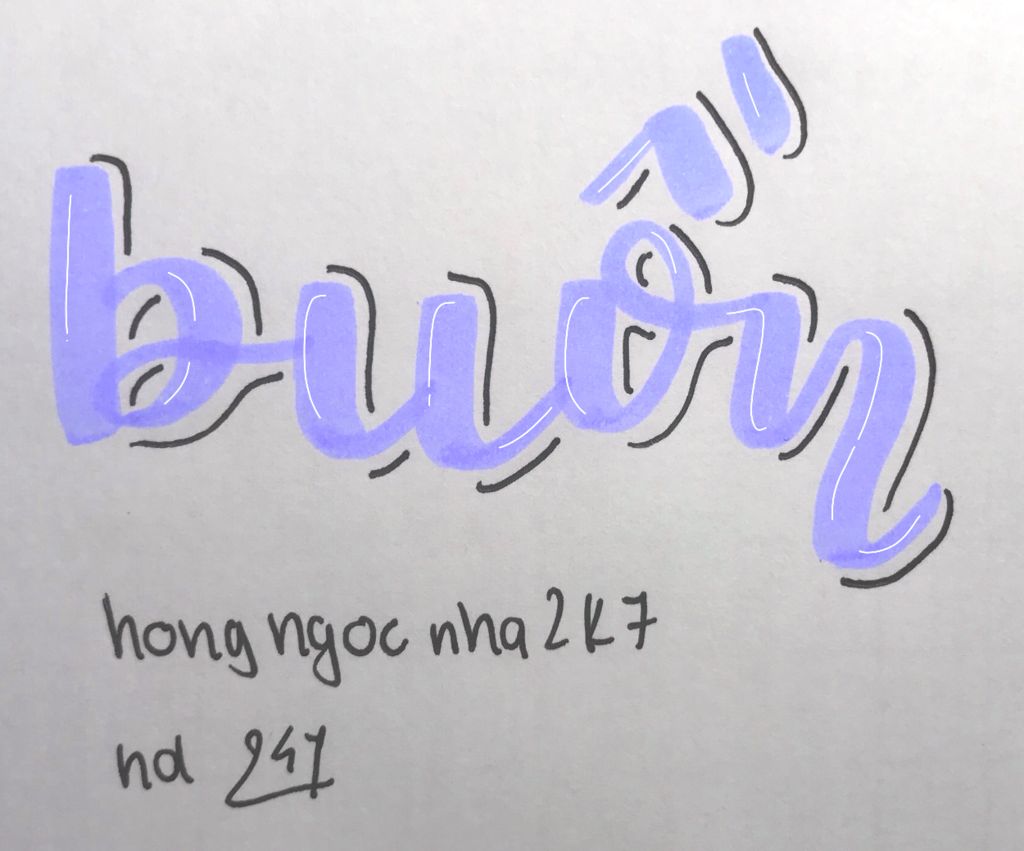 buồn
hong ngoc nha 2k7
nd 247